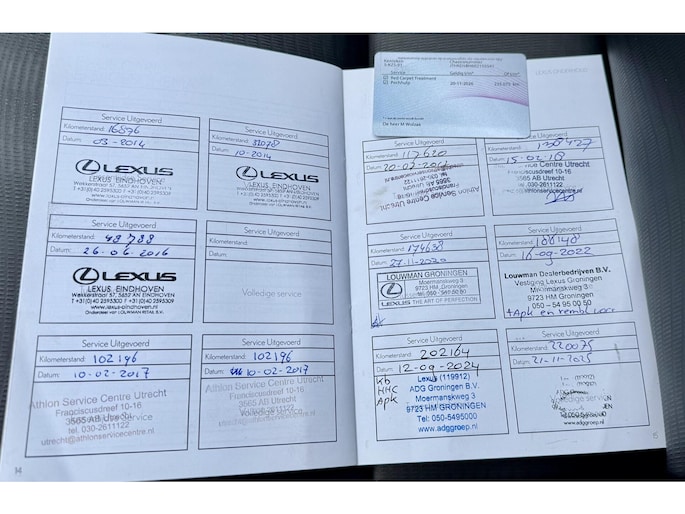 LEXUS ONDERHOUD
Service
Red Carpet Treatment
Pechhulp
De heer M Wolzak
Service Uitgevoerd
Kilometerstand: 16596
Datum: 03-2014
LEXUS
LEXUS EINDHOVEN
Service Uitgevoerd
Kilometerstand:
Datum: 10-2014
LEXUS
LEXUS EINDHOVEN
Service Uitgevoerd
Kilometerstand: 48788
Datum: 26-06-2016
LEXUS
LEXUS EINDHOVEN
Wekkerstraat 57, 5652 AN EINDHOVEN
T +31(0)40 2595300 F +31(0)40 2595309
www.lexus-eindhoven.nl
Onderdeel van LOUWMAN RETAIL B.V.
Service Uitgevoerd
Kilometerstand:
Datum:
Volledige service
Service Uitgevoerd
Kilometerstand: 102196
Datum: 10-02-2017
Athlon Service Centre Utrecht
Franciscusdreef 10-16
3565 AB Utrecht
tel. 030-2611122
utrecht@athlonservicecentre.nl
Service Uitgevoerd
Kilometerstand: 102196
Datum: 10-02-2017
Athlon Service Centre Utrecht
Franciscusdreef 10-16
3565 AB Utrecht
tel. 030-2611122
utrecht@athlonservicecentre.nl
14
Service Uitgevoerd
Kilometerstand: 117620
Datum:
Athlon Service Centre Utrecht
Service Uitgevoerd
Kilometerstand:
Datum: 15-02-18
Service Centre Utrecht
Franciscusdreef 10-16
3565 AB Utrecht
tel. 030-2611122
Service Uitgevoerd
Kilometerstand: 174638
Datum: 27-11-2020
LOUWMAN GRONINGEN
Moermanskweg 3
9723 HM Groningen
LEXUS THE ART OF PERFECTION
Service Uitgevoerd
Kilometerstand:
Datum: 16-09-2022
Louwman Dealerbedrijven B.V.
Vestiging Lexus Groningen
Moermanskweg 3
9723 HM Groningen
050 - 54 95 00 50
Service Uitgevoerd
Kilometerstand: 202164
Datum: 12-09-2024
Kb
HHC
Apk
Lexus (119912)
ADG Groningen B.V.
Moermanskweg 3
9723 HM GRONINGEN
Tel: 050-5495000
www.adggroep.nl
Service Uitgevoerd
Kilometerstand: 220075
Datum: 21-11-2025
www.adggroep.nl